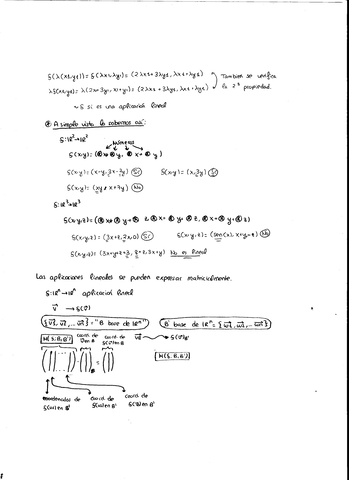 f(λ(x1,y1)) = f(λx1,λy1) = (2λx1+3λy1, λx1+λy1)
También se verifica
λf(x1,y1) = λ(2x1+3y1, x1+y1) = (2λx1+3λy1, λx1+λy1)
la 2ª propiedad.
→ f si es una aplicación lineal
A simple vista lo sabemos así:
f: ℝ²→ℝ²
números
f(x,y) = ( x+ y, x+ y)
f(x,y) = (x+y, 3x-2y) Sí
f(x,y) = (x,3y) Sí
f(x,y) = (xy, x+7y) No
f: ℝ³→ℝ³
f(x,y,z) = ( x+ y+ z, x+ y+ z, x+ y+ z)
f(x,y,z) = (3x+z, 2x, 0) Sí
f(x,y,z) = (sen(x), x+y+z) No
f(x,y,z) = (3x+y+z+3, z+2, 3x+y) No es lineal
Las aplicaciones lineales se pueden expresar matricialmente.
f: ℝⁿ→ℝᵐ aplicación lineal
v → f(v)
{v1, v2, ... vn} = "B base de ℝⁿ"
B' base de ℝᵐ = {w1, w2, ... wm}
M(f,B,B')
coord. de v en B
coord. de f(v) en B'
M(f,B,B')
coordenadas de f(v1) en B'
coord. de f(v2) en B'
coord. de f(vn) en B'